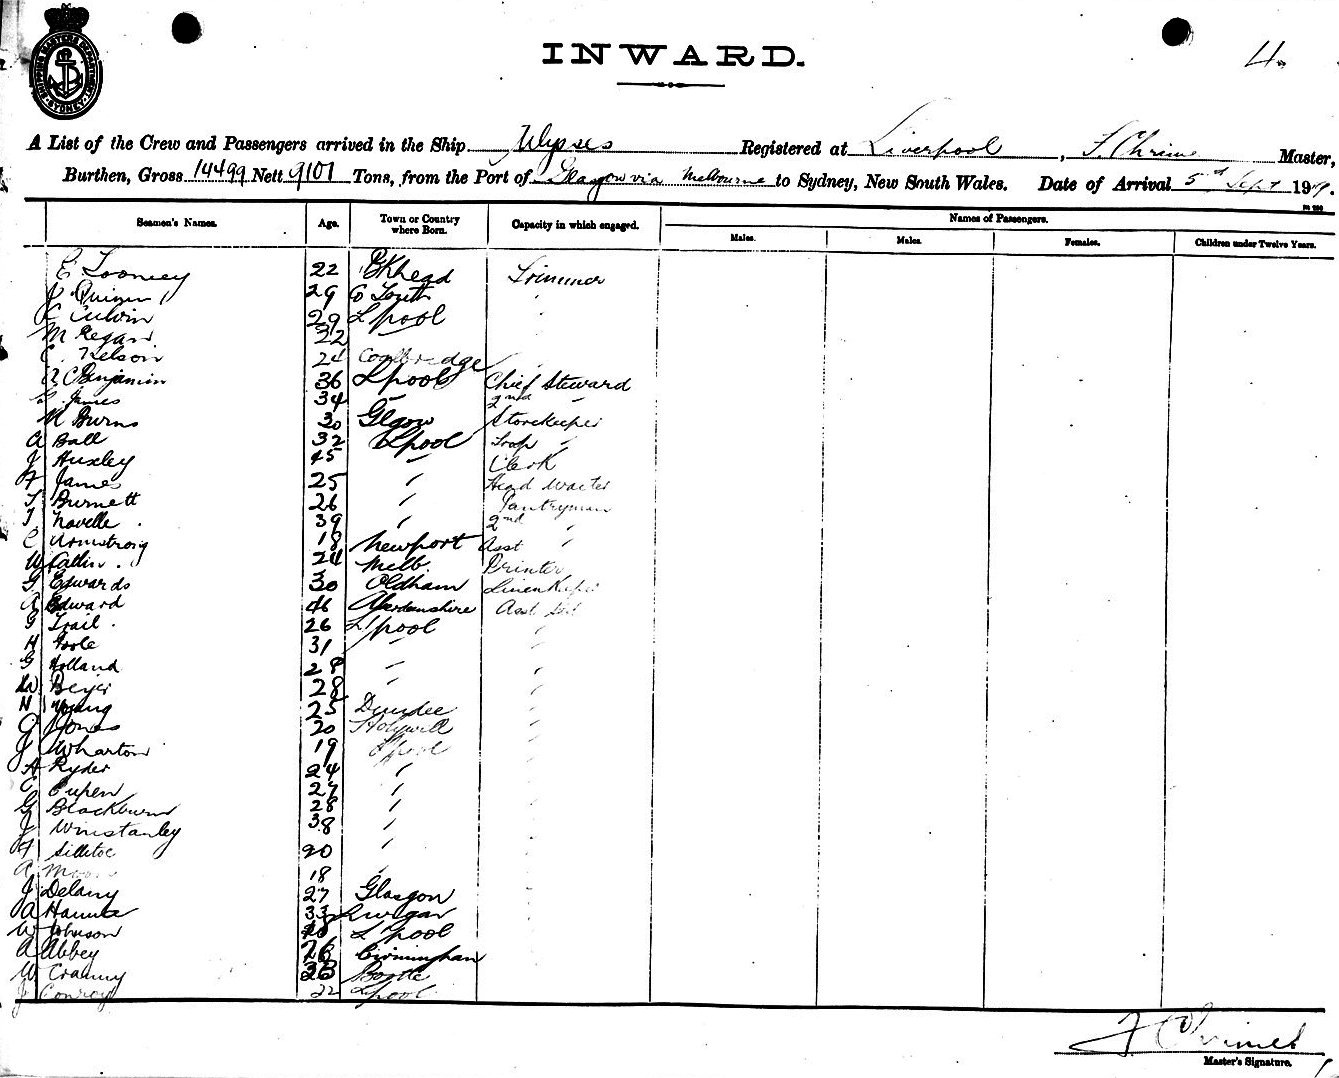 INWARD.
4.
SHIPPING MASTERS DEPARTMENT SYDNEY
A List of the Crew and Passengers arrived in the Ship Ulysses Registered at Liverpool, Master,
Burthen, Gross 14499 Nett 9101 Tons, from the Port of Glasgow via Melbourne to Sydney, New South Wales. Date of Arrival 5th Sept 19
Seamen's Names. Age. Town or Country where Born. Capacity in which engaged. Names of Passengers.
Males. Males. Females. Children under Twelve Years.
E Toomey 22 B'Khead Trimmer
J Quinn 29 Co Louth "
C Culvin 29 L'pool "
M Regan 32
C. Nelson 24
A C Benjamin 36 L'pool Chief Steward
James 34 " 2nd "
M Burns 30 Glgow Storekeeper
A Ball 32 L'pool "
J Huxley 45 " Clerk
F James 25 " Head Waiter
T Burnett 26 " Pantryman
T Navelle 39 " 2nd "
C Armstrong 18 Newport Asst "
W Catlin 24 Melb. Printer
G Edwards 30 Oldham Linen Keeper
A Edward 46 Aberdeenshire Asst Std
G Trail 26 L'pool "
H Poole 31 " "
G Holland 28 " "
W Beyer 28 " "
H Young 25 Dundee "
C Jones 20 Holywell "
J Wharton 19 L'pool "
A Ryder 24 " "
C 27 " "
G Blackburn 28 " "
J Winstanley 38 " "
F Silletoe 20 " "
A 18 " "
J Delany 27 Glasgow "
A Hanna 33 Lurgan "
W Johnson L'pool "
A Abbey 26 Birmingham "
W Cranny Bootle
J Conroy 22 L'pool
Master's Signature.